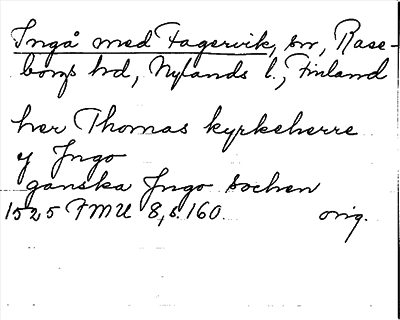 Ingå med Fagervik, sn, Rase-
borgs hd, Nylands l., Finland
her Thomas kyrkeherre
y Ingo
ganska Ingo sochen
1525 FMU 8, s. 160. orig.